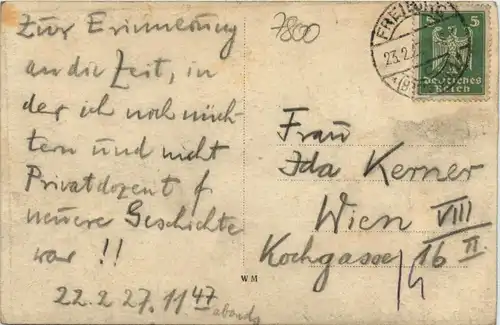 Zur Erinnerung
an die Zeit, in
der ich noch nüch-
tern und nicht
Privatdozent f
neuere Geschichte
war !!
22.2 27. 11 47
abends
7800
FREIBURG
23.2.
5
Deutsches
Reich
Frau
Ida Kerner
Wien VIII
Kochgasse 16 II.
WM